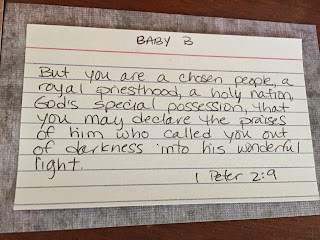 BABY B
But you are a chosen people, a
royal priesthood, a holy nation,
God's special possession, that
you may declare the praises
of him who called you out
of darkness into his wonderful
light.
1 Peter 2:9